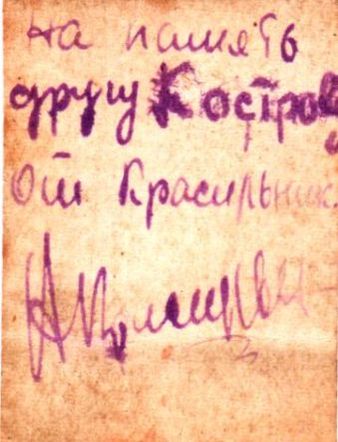 на память
другу Костров
у
от Красильник.